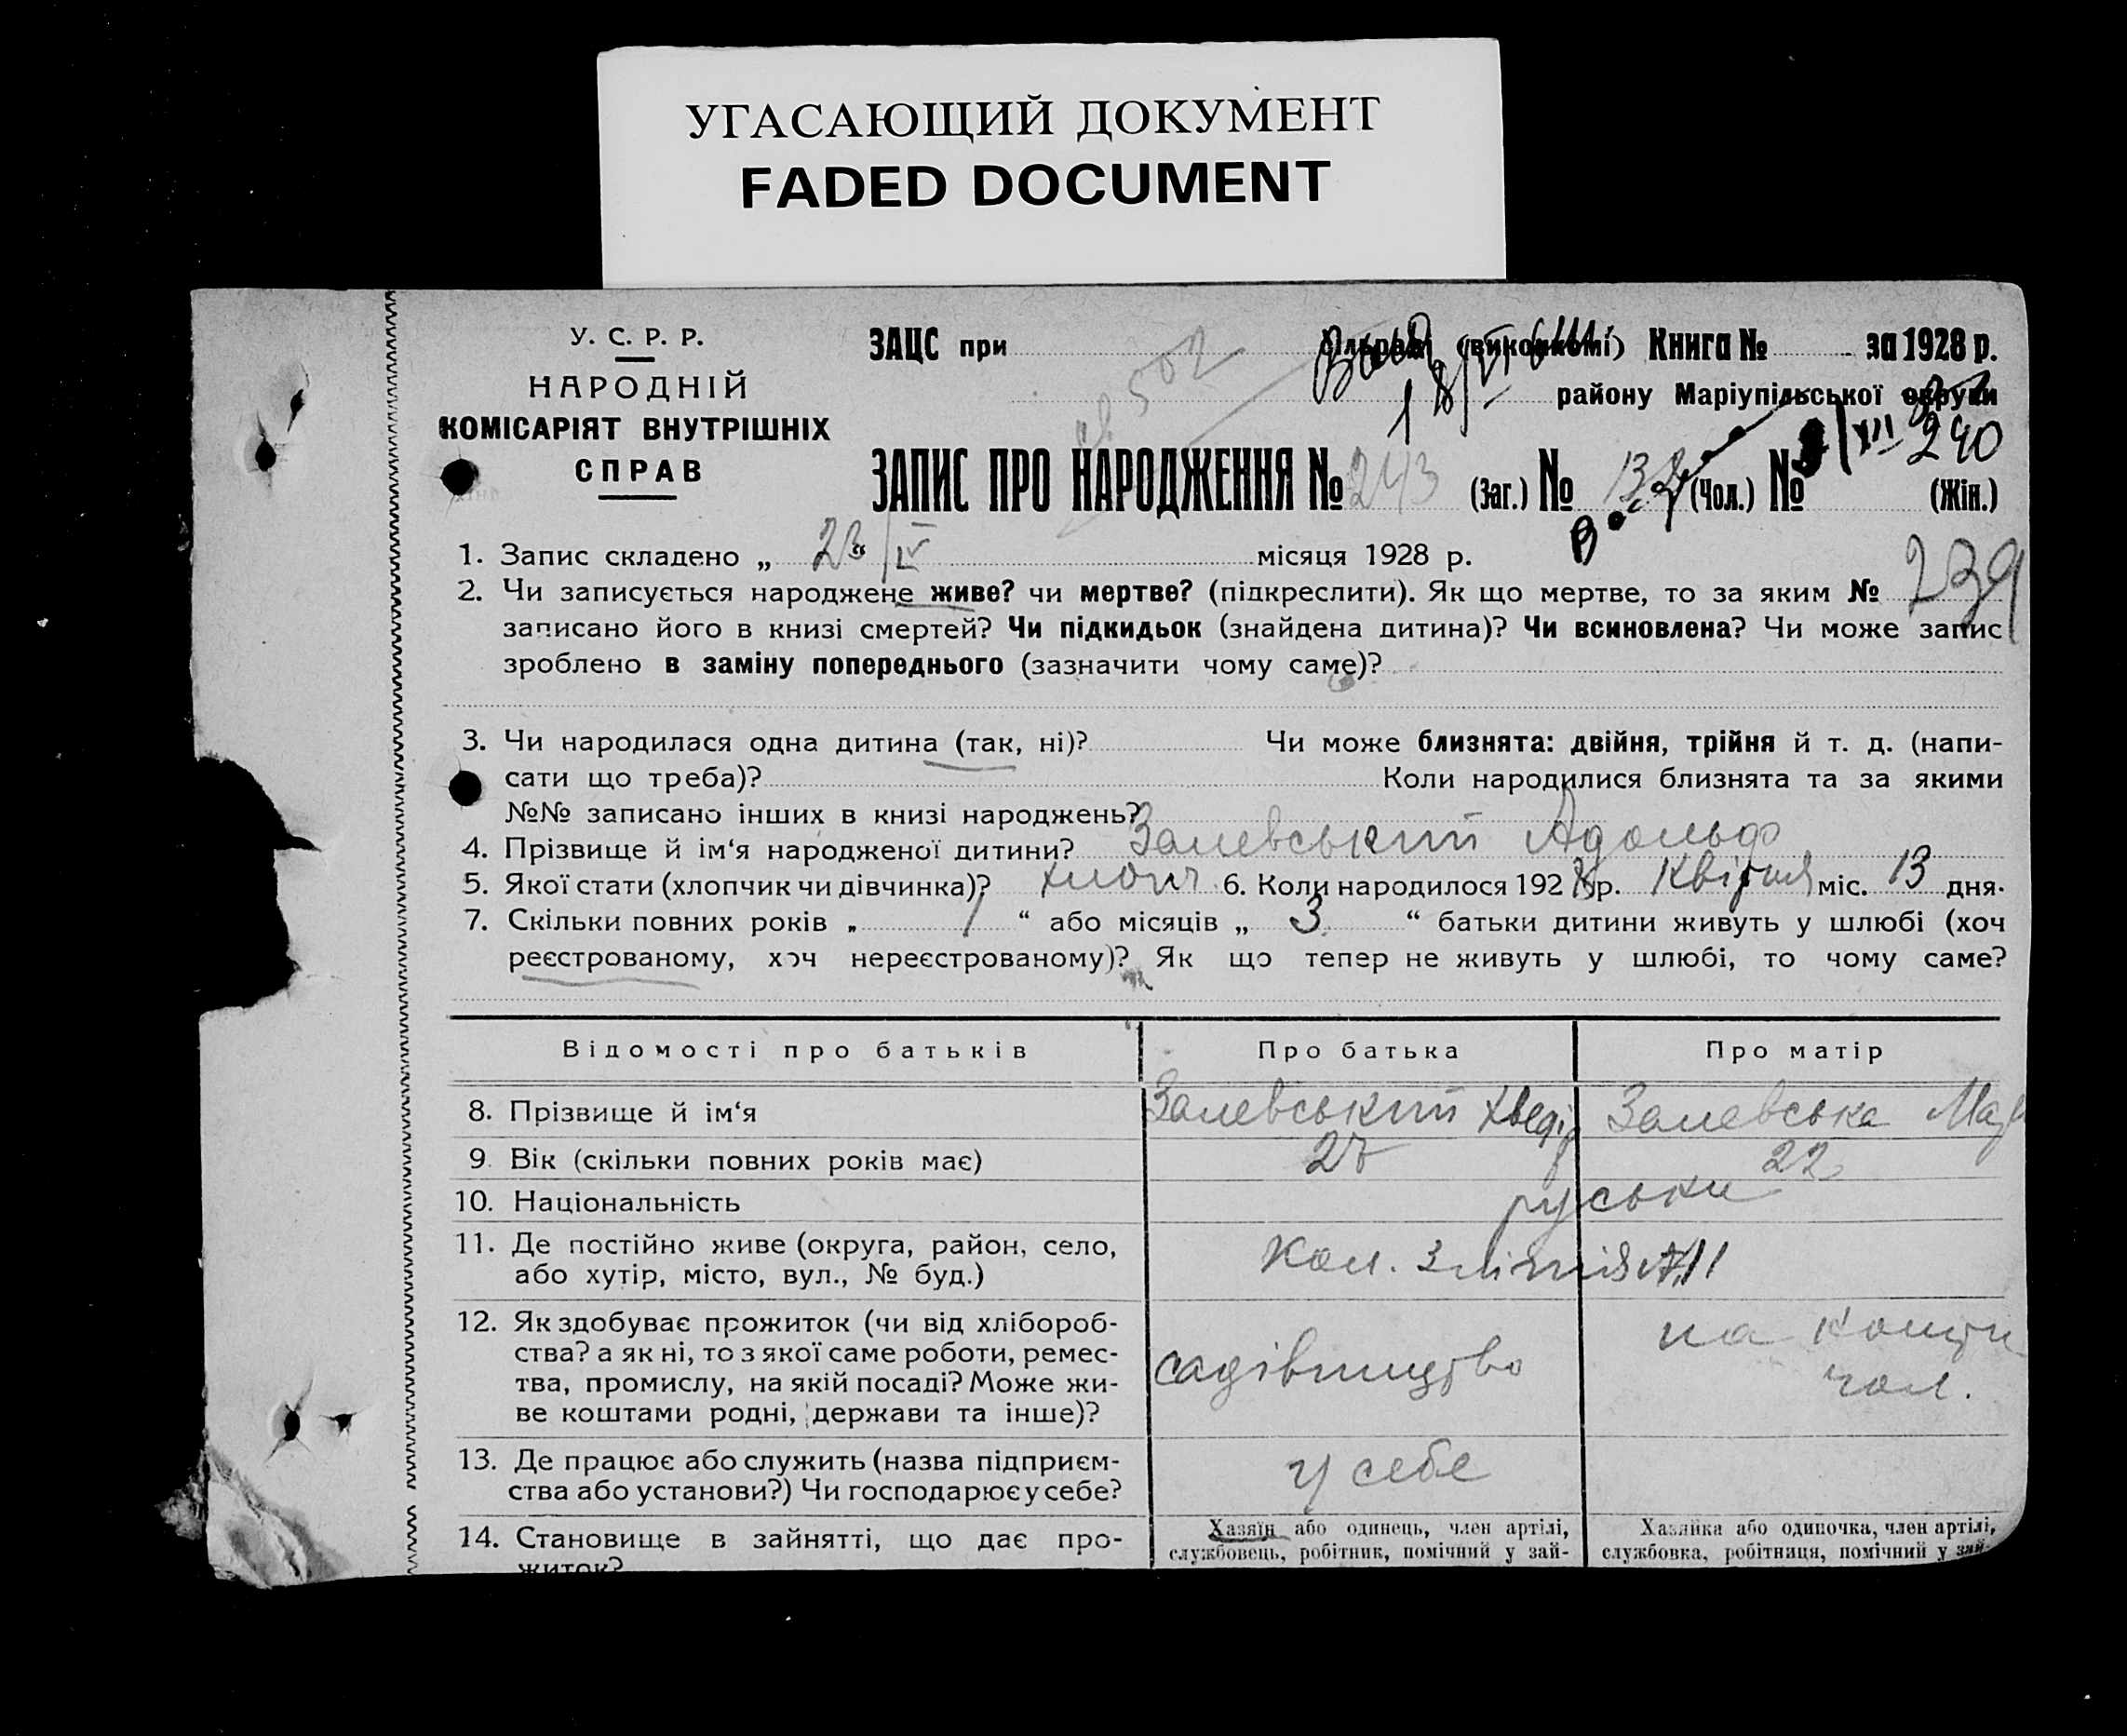 УГАСАЮЩИЙ ДОКУМЕНТ
FADED DOCUMENT
У. С. Р. Р.
НАРОДНІЙ
КОМІСАРІЯТ ВНУТРІШНІХ
СПРАВ
ЗАЦС при (виконкомі) Книга № за 1928 р.
502
району Маріупільської округи
240
ЗАПИС ПРО НАРОДЖЕННЯ № 243 (Заг.) № 132 (Чол.) № (Жін.)
1. Запис складено „ 23 “ IV місяця 1928 р.
239
2. Чи записується народжене живе? чи мертве? (підкреслити). Як що мертве, то за яким №
записано його в книзі смертей? Чи підкидьок (знайдена дитина)? Чи всиновлена? Чи може запис
зроблено в заміну попереднього (зазначити чому саме)?
3. Чи народилася одна дитина (так, ні)? Чи може близнята: двійня, трійня й т. д. (напи-
сати що треба)? Коли народилися близнята та за якими
№№ записано інших в книзі народжень?
4. Прізвище й ім‘я народженої дитини? Залевський Адольф
5. Якої стати (хлопчик чи дівчинка)? хлопч. 6. Коли народилося 1928 р. Квітня міс. 13 дня.
7. Скільки повних років „ 1 “ або місяців „ 3 “ батьки дитини живуть у шлюбі (хоч
реєстрованому, хоч нереєстрованому)? Як що тепер не живуть у шлюбі, то чому саме?
Відомості про батьків Про батька Про матір
8. Прізвище й ім‘я Залевський Хведір Залевська
9. Вік (скільки повних років має) 22
10. Національність руськи
11. Де постійно живе (округа, район, село,
або хутір, місто, вул., № буд.) Кол.
12. Як здобуває прожиток (чи від хлібороб-
ства? а як ні, то з якої саме роботи, ремес-
тва, промислу, на якій посаді? Може жи-
ве коштами родні, держави та інше)? садівництво на кошти
чол.
13. Де працює або служить (назва підприєм-
ства або установи?) Чи господарює у себе? у себе
14. Становище в зайнятті, що дає про-
житок?
Хазяїн або одинець, член артілі,
службовець, робітник, помічний у зай-
Хазяйка або одиночка, член артілі,
службовка, робітниця, помічний у зай-